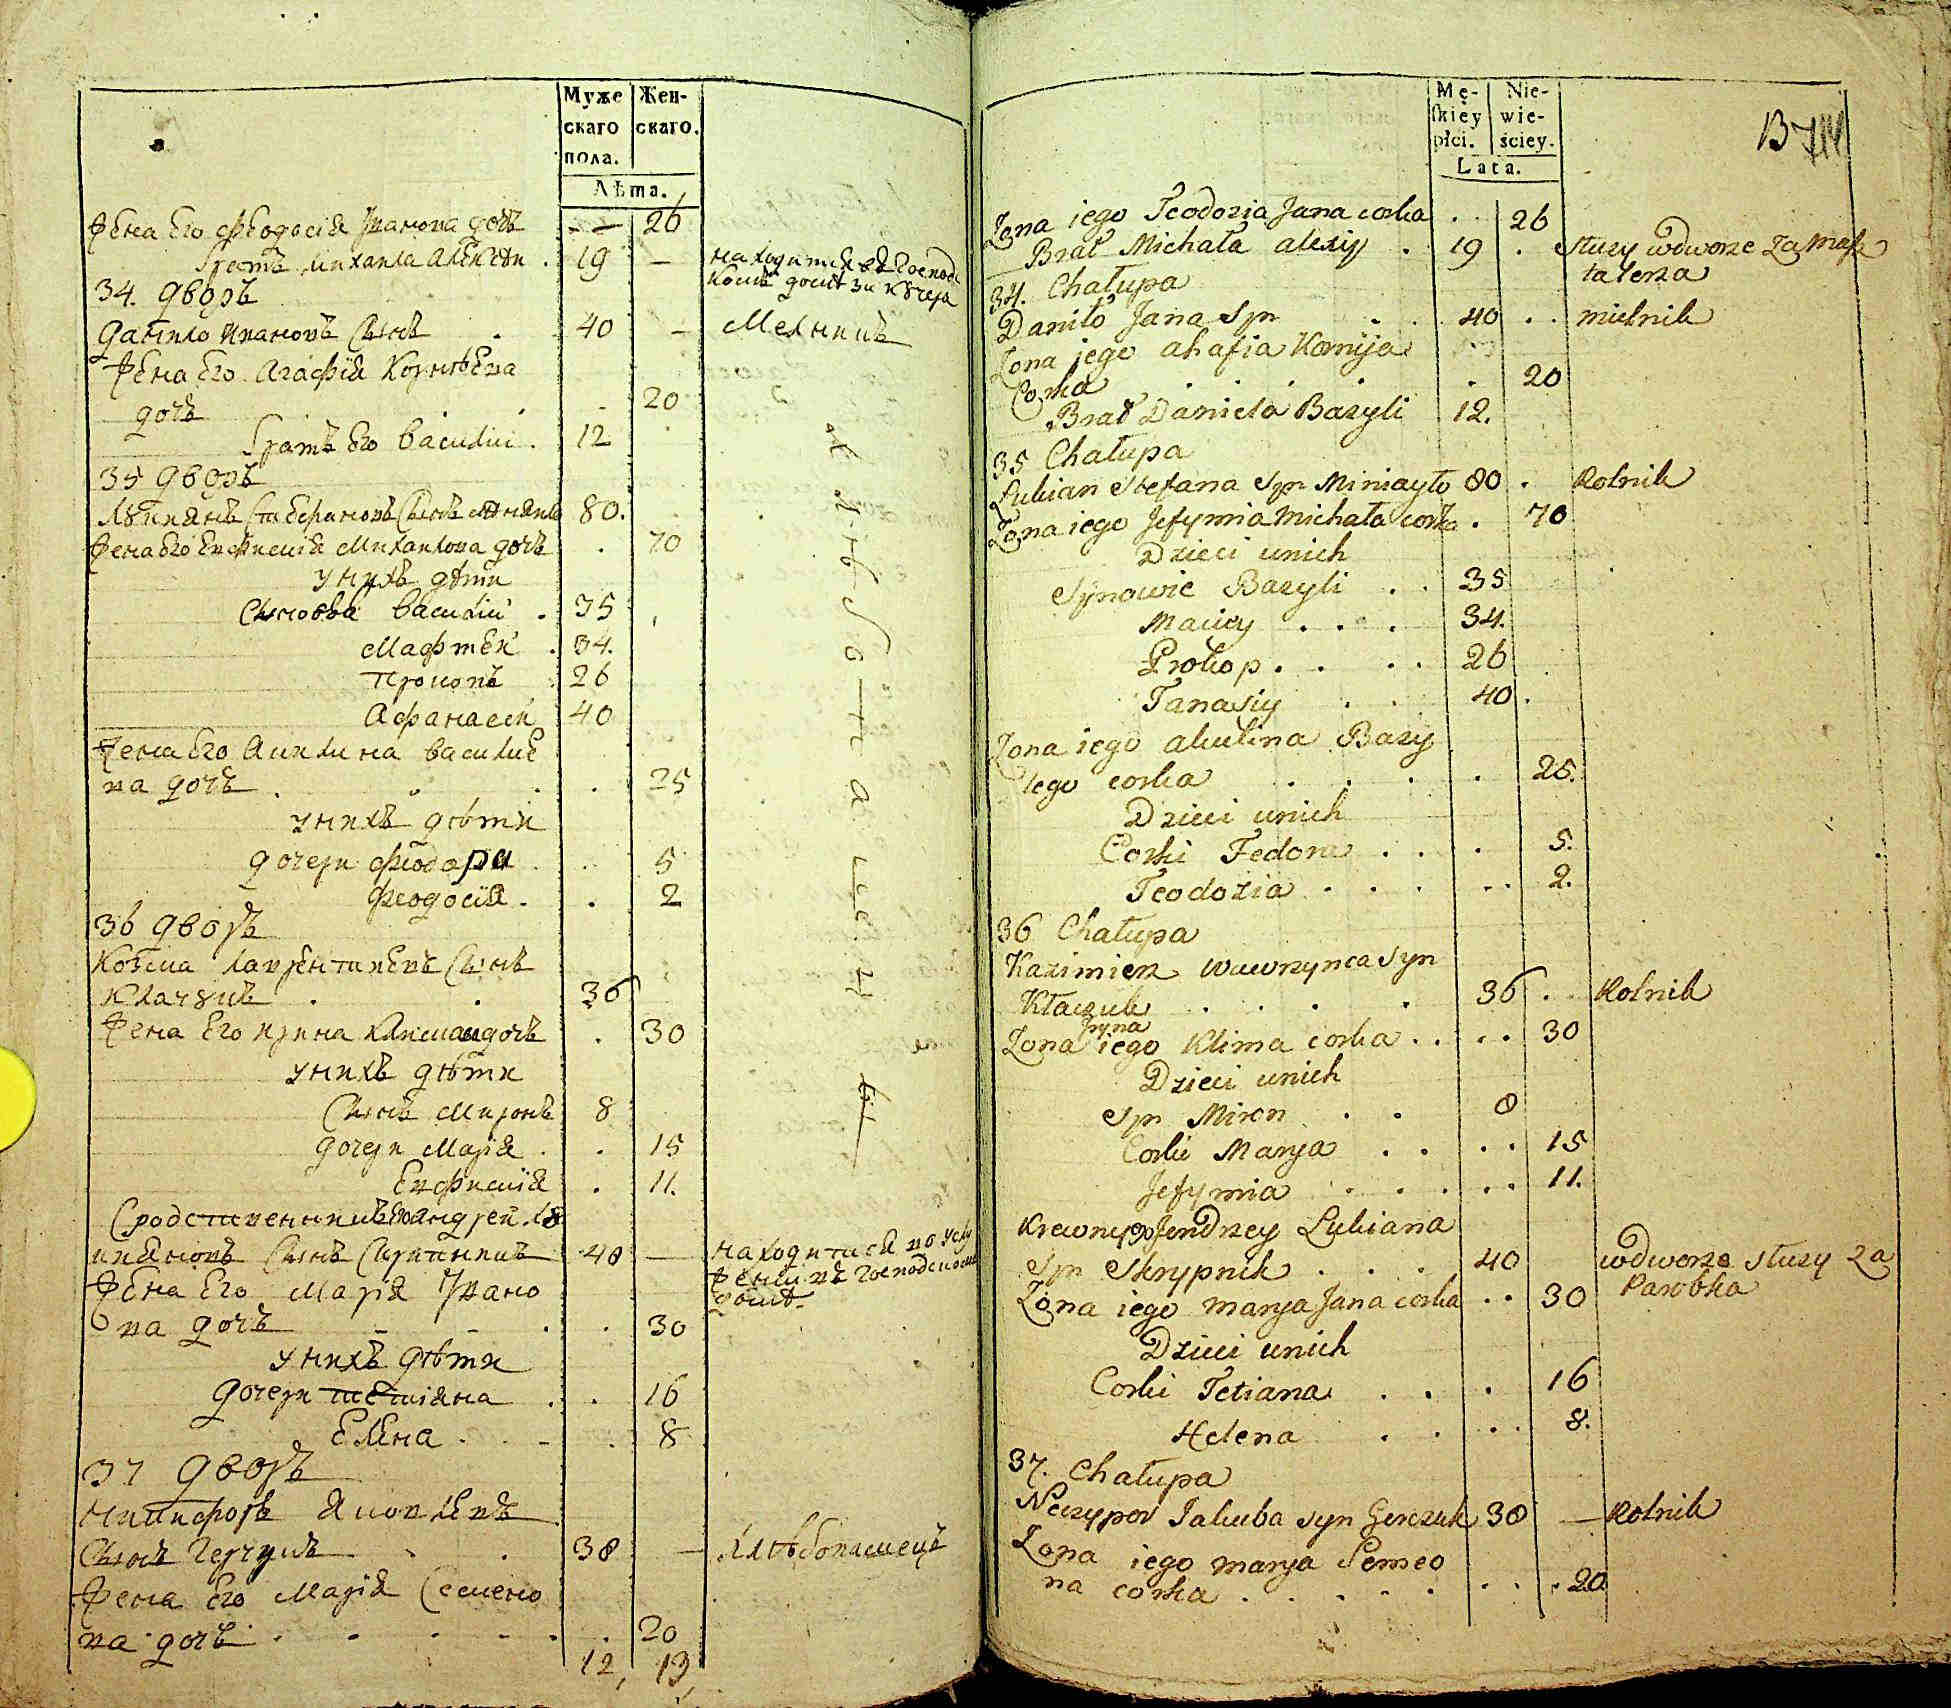 Муже
скаго
пола.
Жен-
скаго.
Лѣта.
Жена его Феодосія Иванова дочь -- 26
Братъ Михаила Алексѣи . 19 — находится въ Господ
34. дворъ
скомъ домѣ за кучера
Данило Ивановъ сынъ . 40 — Мелникъ
Жена его Агафія Корнѣева
дочь . 20
Братъ его Василий . 12
35 дворъ
Лукиянъ Стефановъ сынъ 80.
Жена его Евфимія Михайлова дочь . 70
У нихъ дѣти
Сыновья Василий . 35
Мафтей . 34.
Прокопъ 26
Афанасей 40
Жена его Акилина Василие
ва дочь . . . 25
У нихъ дѣти
дочери Феодора . 5
Феодосия . . 2
хлѣбопашецы
36 дворъ
Козма Лаврентиевъ сынъ
Клачукъ . . 36
Жена его Ирина Климова дочь . 30
У нихъ дѣти
Сынъ Миронъ 8
дочери Марія . . 15
Евфимія . 11.
Сродственникъ его Андрей Лу
кияновъ сынъ Скрипникъ 40 — находится во услу
Жена его Марія Ивано
жении въ Господском
домѣ.
ва дочь - - . . 30
У нихъ дѣти
дочери Тетіяна . . 16
Елена . - . 8
37 дворъ
Никифоръ Яковлевъ
сынъ Герчукъ . . 38 — Хлѣбопашецъ
Жена его Марія Семено
ва дочь . - - - - . 20
12, 13,
Mę-
skiey
płci.
Nie-
wie-
ściey.
Lata.
13
Zona iego Teodozia Jana corka . . 26
Brat Michała alexiy . 19 . służy wdworze za masz
talerza
34. Chałupa
Daniło Jana syn . . 40 . . mielnik
Zona jego ahafia Kornija
Corka . . . . 20
Brat Daniela Bazyli 12.
35 Chałupa
Łukian Stefana syn Miniayło 80 . Rolnik
Zona iego Jefymia Michała corka . 70
Dzieci unich
Synowie Bazyli . . 35
Maciey . . . 34.
Prokop . . . . 26
Tanasiy . . 40 .
Zona iego akulina Bazy
lego corka . . . . 25.
Dzieci unich
Corki Fedora . . . 5.
Teodozia . . . . . 2.
36 Chałupa
Kazimierz Wawrzynca syn
Kłaczuk . . . . 36 . Rolnik
Iryna
Zona iego Klima corka . . . . 30
Dzieci unich
Syn Miron . . 8
Corki Marya . . . . 15
Jefymia . . . . . . 11.
Krewny Jendrzey Łukiana
syn Skrypnik . . . 40 wdworze służy za
Parobka
Zona iego marya Jana corka . . 30
Dzieci unich
Corki Tetiana . . . 16
Helena . . . . 8.
37. Chałupa
Neczypor Jakuba syn Gerczuk 38 — Rolnik
Zona iego marya Semeo
na corka . . . . . . . . 20